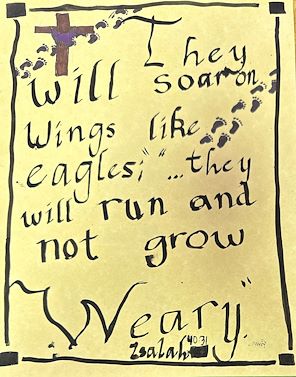 They
will soar on
wings like
eagles;" "...they
will run and
not grow
Weary."
Isaiah 40:31